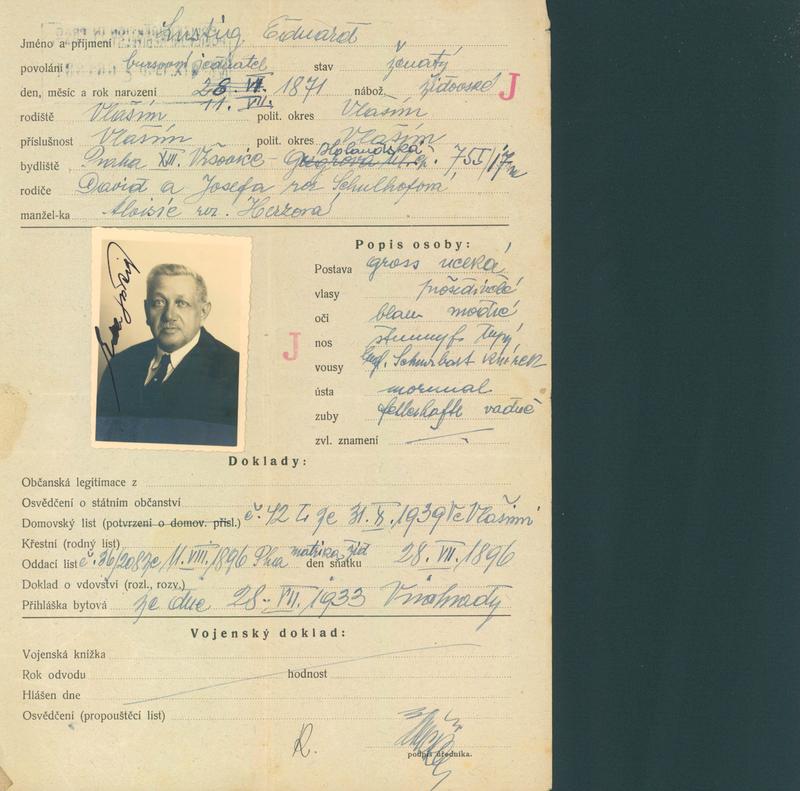 Jméno a příjmení Lustig Eduard
povolání bursovní jednatel stav ženatý
den, měsíc a rok narození 28. VII. 1871 nábož. židovské J
11. VII.
rodiště Vlašim polit. okres Vlašim
příslušnost Vlašim polit. okres Vlašim
Holandská
bydliště Praha XIII. Vršovice - čp. 755/17
rodiče David a Josefa roz. Schulhofová
manžel-ka Aloisie roz. Herzová
Popis osoby:
Postava gross veliká
vlasy prošedivělé
oči blau modré
nos stumpf tupý
J
vousy Schnurbart knírek
ústa normal
zuby fehlerhaft vadné
zvl. znamení
Doklady:
Občanská legitimace z
Osvědčení o státním občanství
Domovský list (potvrzení o domov. přísl.) č. 42 ze 31. X. 1939 Ve Vlašimi
Křestní (rodný list)
Oddací list č. 36/208 ze 11. VIII. 1896 Pha matrika žid den sňatku 28. VII. 1896
Doklad o vdovství (rozl., rozv.)
Přihláška bytová ze dne 28. VII. 1933 Vinohrady
Vojenský doklad:
Vojenská knížka
Rok odvodu hodnost
Hlášen dne
Osvědčení (propouštěcí list)
R.
podpis úředníka.